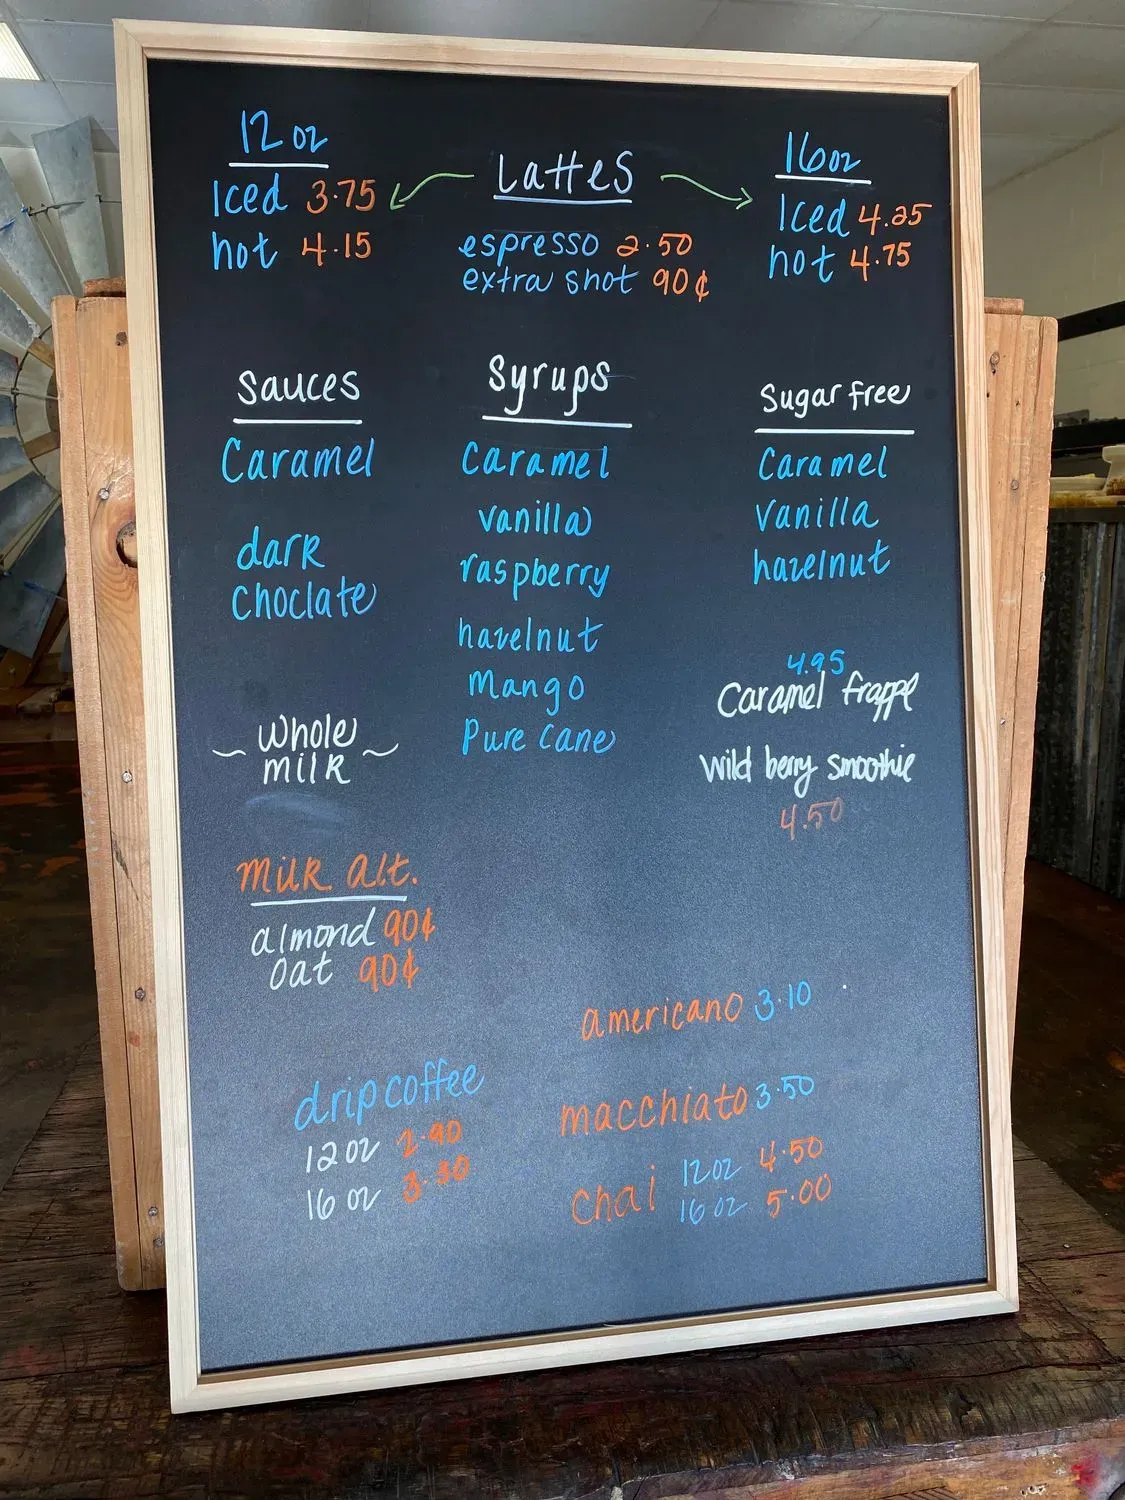 12 oz
Iced 3.75
hot 4.15
Lattes
espresso 2.50
extra shot 90¢
16oz
Iced 4.25
hot 4.75
Sauces
Caramel
dark
choclate
Syrups
Caramel
vanilla
raspberry
hazelnut
Mango
Pure Cane
Sugar free
Caramel
vanilla
hazelnut
4.95
Caramel frappe
Wild berry smoothie
4.50
~ Whole ~
milk
Milk alt.
almond 90¢
Oat 90¢
drip coffee
12 oz 2.90
16 oz 3.30
americano 3.10
macchiato 3.50
chai 12oz 4.50
16 oz 5.00